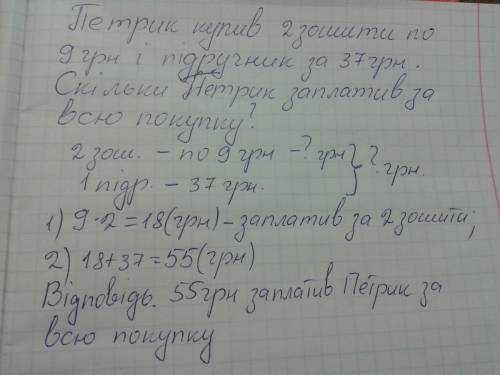 Петрик купив 2 зошити по
9 грн і підручник за 37 грн.
Скільки Петрик заплатив за
всю покупку?
2 зош. – по 9 грн – ? грн } ? грн.
1 підр. – 37 грн.
1) 9·2=18(грн) – заплатив за 2 зошити;
2) 18+37=55(грн)
Відповідь. 55 грн заплатив Петрик за
всю покупку